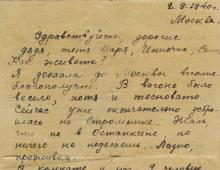 2.9.1940.
Москва.
Здравствуйте, дорогие
дядя, тетя Даря, Инночка,
Как живете?
Я доехала до Москвы вполне
благополучно. В вагоне было
весело, хотя и тесновато.
Сейчас уже окончательно устро-
илась на Стромынке. Жаль
что не в Останкине, но
ничего не поделаешь. Ладно,
проживем.
В комнате нас 9 человек